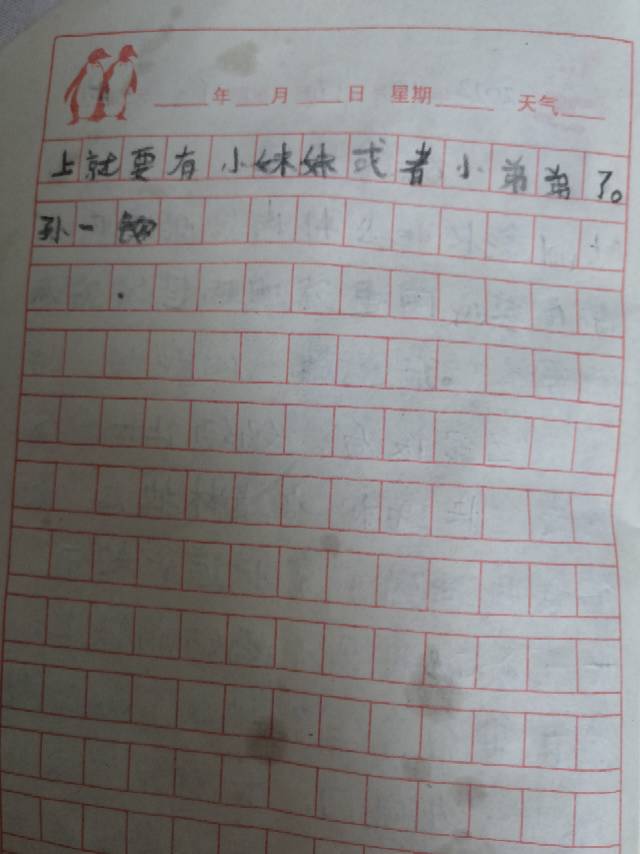 年 月 日 星期 天气
上就要有小妹妹或者小弟弟了。
孙一